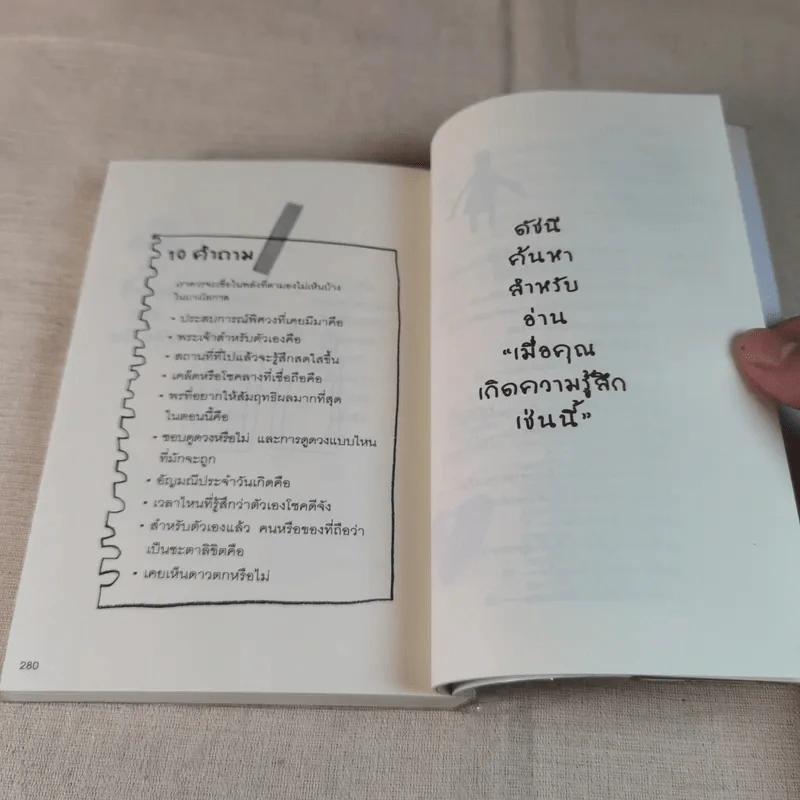 10 คำถาม
เราควรจะเชื่อในพลังที่ตามองไม่เห็นบ้าง
ในบางโอกาส
- ประสบการณ์พิศวงที่เคยมีมาคือ
- พระเจ้าสำหรับตัวเองคือ
- สถานที่ที่ไปแล้วจะรู้สึกสดใสขึ้น
- เคล็ดหรือโชคลางที่เชื่อถือคือ
- พรที่อยากให้สัมฤทธิผลมากที่สุด
ในตอนนี้คือ
- ชอบดูดวงหรือไม่ และการดูดวงแบบไหน
ที่มักจะถูก
- อัญมณีประจำวันเกิดคือ
- เวลาไหนที่รู้สึกว่าตัวเองโชคดีจัง
- สำหรับตัวเองแล้ว คนหรือของที่ถือว่า
เป็นชะตาลิขิตคือ
- เคยเห็นดาวตกหรือไม่
280
ดัชนี
ค้นหา
สำหรับ
อ่าน
“เมื่อคุณ
เกิดความรู้สึก
เช่นนี้”